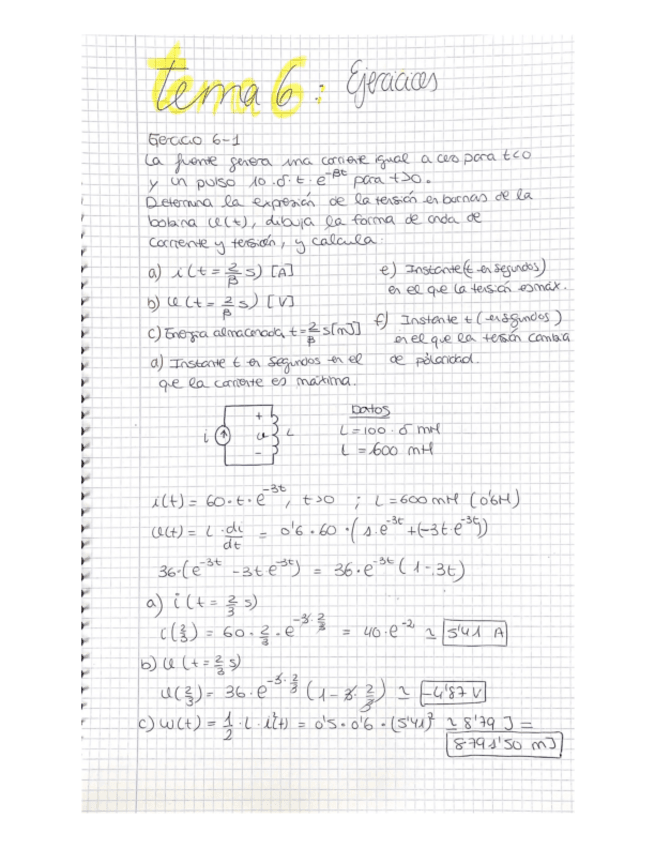 tema 6: Ejercicios
Ejercicio 6-1
La fuente genera una corriente igual a cero para t<0
y un pulso 10·δ·t·e^-βt para t>0.
Determina la expresión de la tensión en bornas de la
bobina u(t), dibuja la forma de onda de
corriente y tensión, y calcula:
a) i(t = 2/β s) [A]
b) u(t = 2/β s) [V]
c) Energía almacenada, t = 2/β s [mJ]
d) Instante t en segundos en el
que la corriente es máxima.
e) Instante (t en segundos)
en el que la tensión es max.
f) Instante t (en segundos)
en el que la tensión cambia
de polaridad.
i
+
u
-
L
DATOS
L = 100·δ mH
L = 600 mH
i(t) = 60·t·e^-3t, t>0 ; L = 600 mH (0'6H)
u(t) = L·di/dt = 0'6·60·(1·e^-3t + (-3t e^-3t))
36·(e^-3t - 3t e^-3t) = 36·e^-3t (1-3t)
a) i(t = 2/3 s)
i(2/3) = 60·2/3·e^-3·2/3 = 40·e^-2 ≃ 5'41 A
b) u(t = 2/3 s)
u(2/3) = 36·e^-3·2/3 (1-3·2/3) ≃ -4'87 V
c) w(t) = 1/2·L·i²(t) = 0'5·0'6·(5'41)² ≃ 8'79 J =
8791'50 mJ